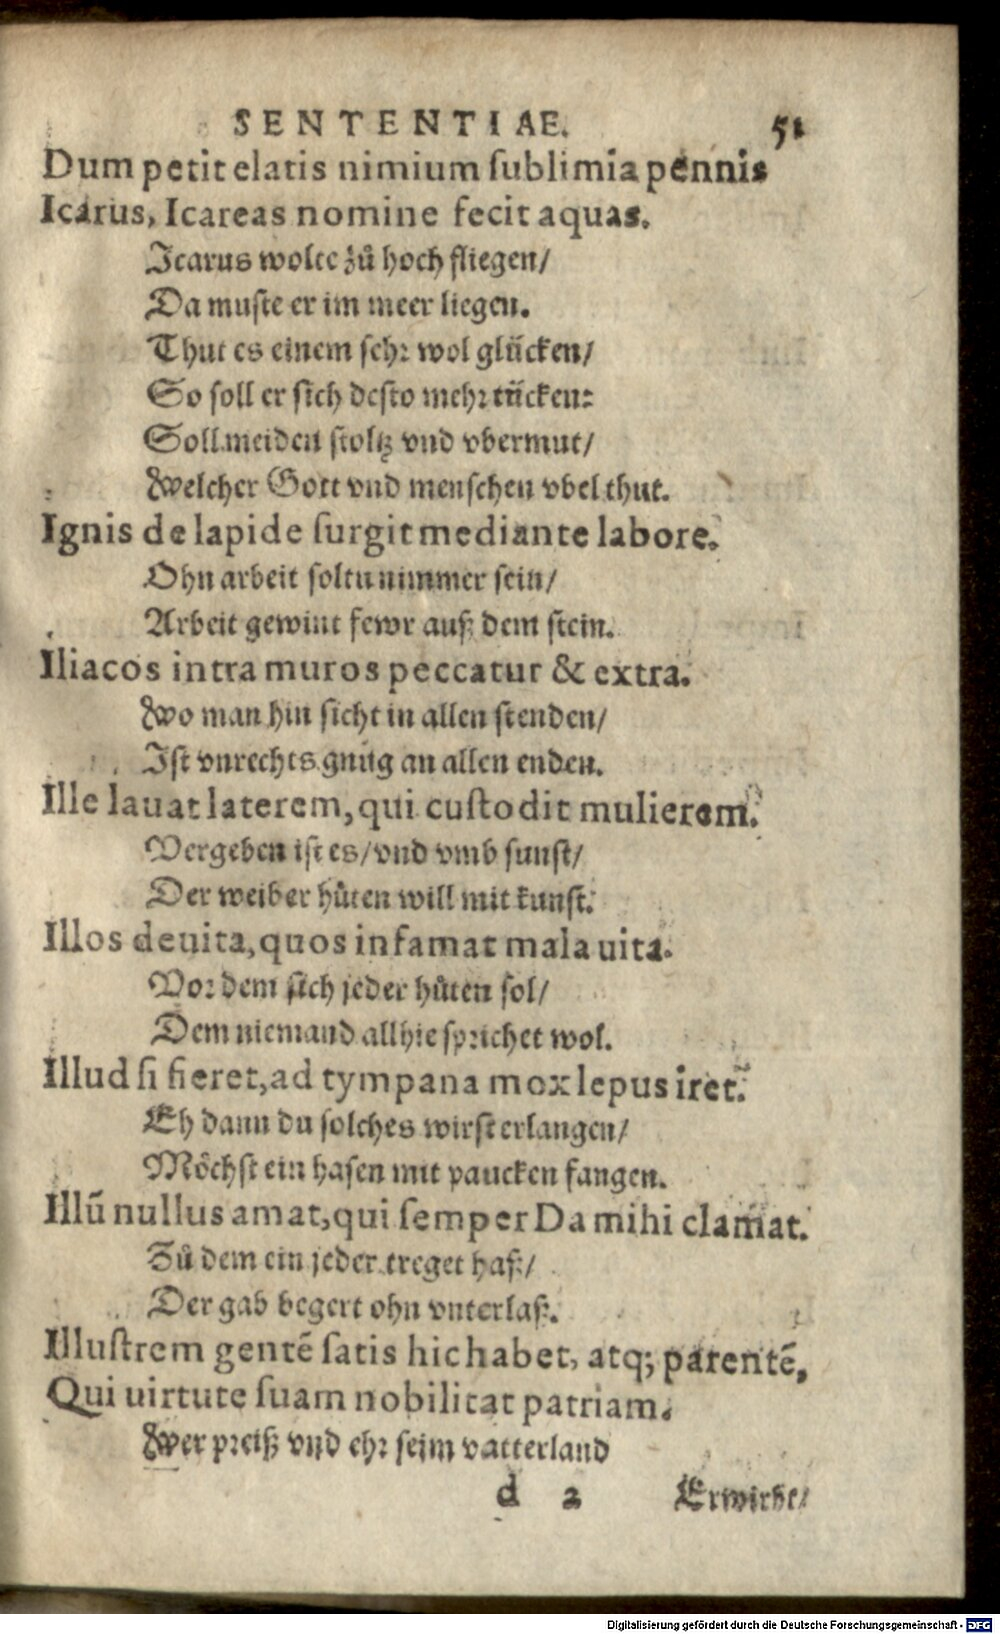 SENTENTIAE. 51
Dum petit elatis nimium ſublimia pennis
Icarus, Icareas nomine fecit aquas.
Icarus wolte zů hoch fliegen/
Da muſte er im meer liegen.
Thut es einem ſehr wol glücken/
So ſoll er ſich deſto mehr tücken:
Soll meiden ſtoltz vnd vbermut/
Welcher Gott vnd menſchen vbel thut.
Ignis de lapide ſurgit mediante labore.
Ohn arbeit ſoltu nimmer ſein/
Arbeit gewint fewr auß dem ſtein.
Iliacos intra muros peccatur & extra.
Wo man hin ſicht in allen ſtenden/
Iſt vnrechts gnůg an allen enden.
Ille lauat laterem, qui cuſtodit mulierem.
Vergeben iſt es/ vnd vmb ſunſt/
Der weiber hůten will mit kunſt.
Illos deuita, quos infamat mala uita.
Vor dem ſich jeder hůten ſol/
Dem niemand allhie ſprichet wol.
Illud ſi fieret, ad tympana mox lepus iret.
Eh dann du ſolches wirſt erlangen/
Möchſt ein haſen mit paucken fangen.
Illũ nullus amat, qui ſemper Da mihi clamat.
Zů dem ein jeder treget haß/
Der gab begert ohn vnterlaß.
Illuſtrem gentẽ ſatis hic habet, atq; parentẽ,
Qui uirtute ſuam nobilitat patriam.
Wer preiß vnd ehr ſeim vatterland
d 2 Erwirbt/
Digitalisierung gefördert durch die Deutsche Forschungsgemeinschaft - DFG